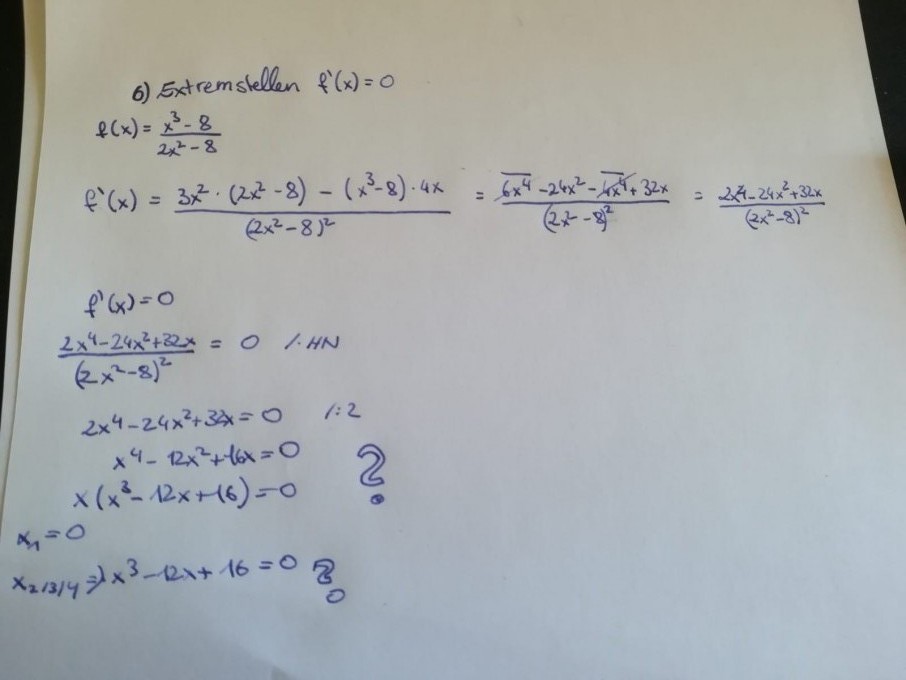 6) Extremstellen f'(x) = 0
f(x) = x³ - 8 / 2x² - 8
f'(x) = 3x² · (2x² - 8) - (x³ - 8) · 4x / (2x² - 8)² = 6x⁴ - 24x² - 4x⁴ + 32x / (2x² - 8)² = 2x⁴ - 24x² + 32x / (2x² - 8)²
f'(x) = 0
2x⁴ - 24x² + 32x / (2x² - 8)² = 0 /· HN
2x⁴ - 24x² + 32x = 0 /: 2
x⁴ - 12x² + 16x = 0 ?
x(x³ - 12x + 16) = 0
x₁ = 0
x₂/₃/₄ ⇒ x³ - 12x + 16 = 0 ?